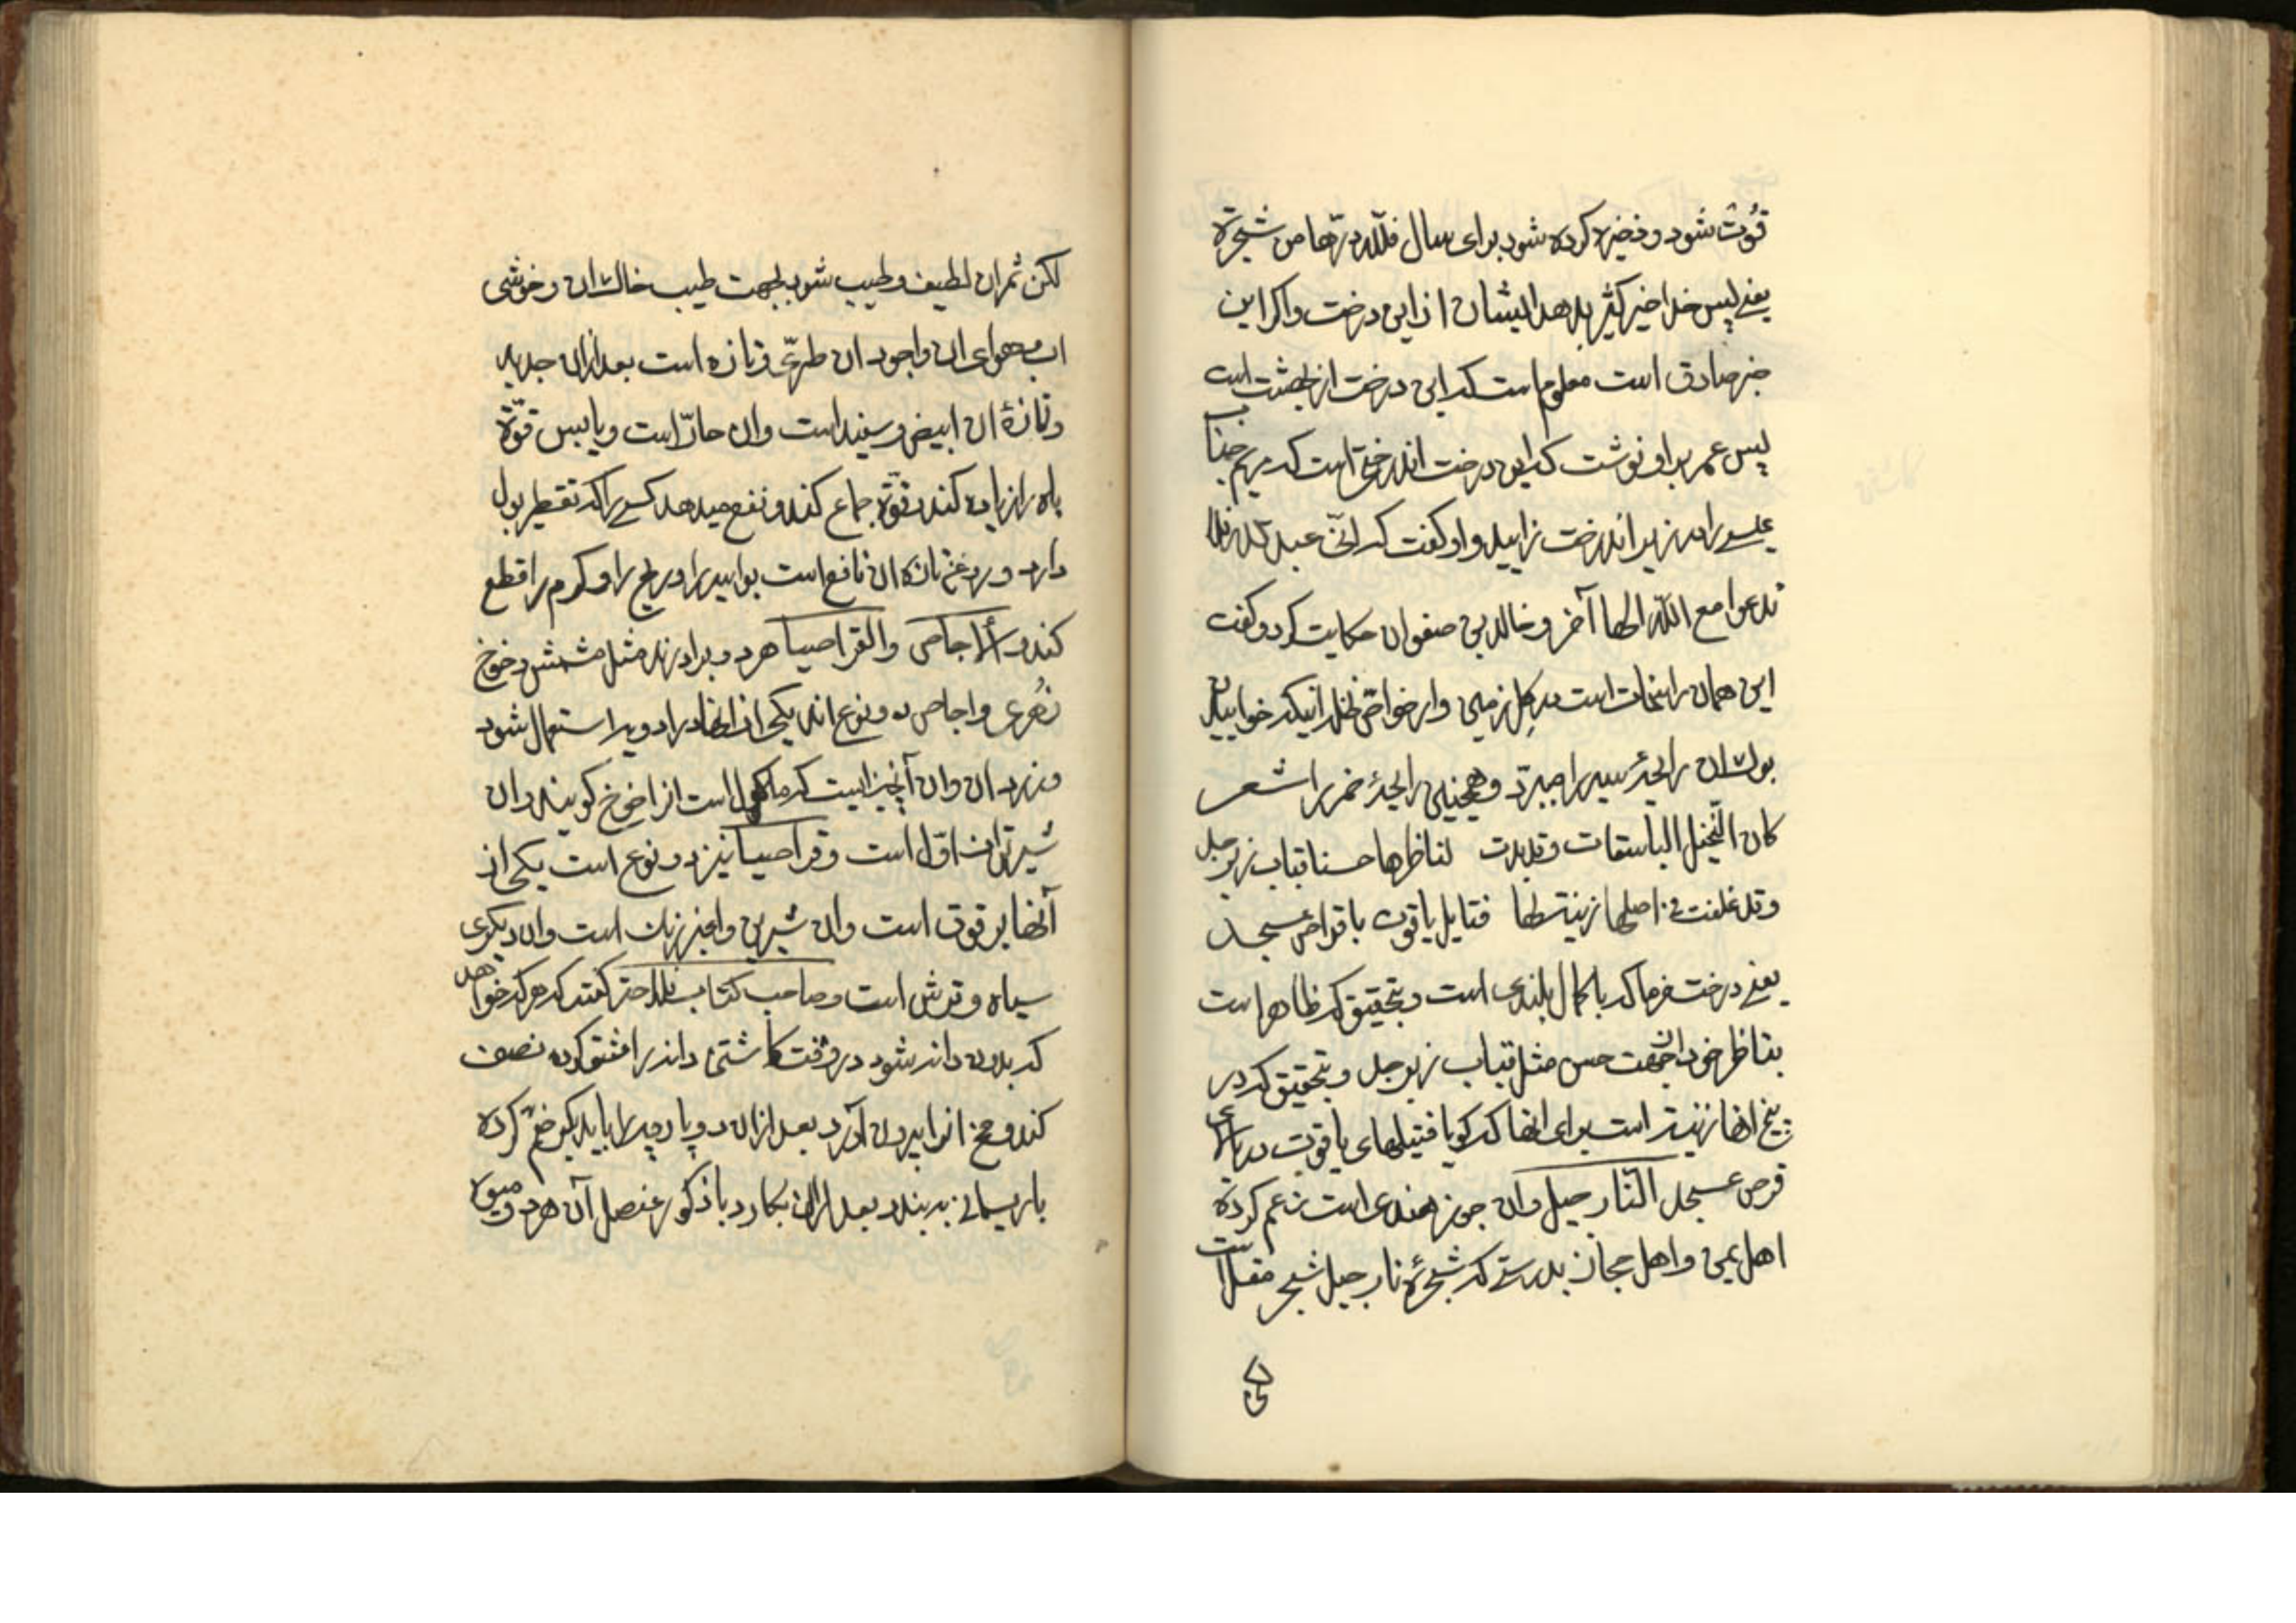 قوت شود و ذخیره کرده شود برای سال فللّه درّها من شجرة
یعنی پس خدا خیر کثیر بدهد ایشان از این درخت واکر این
خبر صادق است معلوم است که این درخت از بهشت است
پس عمر براو نوشت که این درخت اندرختی است که مریم جناب
عیسی را در زیر اندرخت زایید و او کفت که انّی عبد اللّه فلا
تدعوا مع اللّه الها آخر و خالد بن صفوان حکایت کرد و کفت
این همان راسخات است در کل زمین واز خواص نخل انیکه خواییدن
بوست ان رایحهٔ سیر را میبرد و همچنین رایحهٔ خمر را شعر
کان النّخیل الباسقات وقد بدت لناظرها حسنا قباب زبرجد
وقد علقت من اصلها زینة لها قنادیل یاقوت باقراص عسجد
یعنی درخت خرما که باکمال بلندی است و بتحقیق که ظاهر است
بناظر خود از جهت حسن مثل قباب زبرجد و بتحقیق که در
بیخ انها زینت است برای انها که کویا فتیلهای یاقوت در برابری
قرص عسجد النّارجیل وان جوز هندی است زعم کرده
اهل یمن و اهل حجاز بدرستی که شجرهٔ نارجیل شجر مقل است
لکن
لکن ثمران لطیف و طیب شود بجهت طیب خاک ان و خوشی
اب و هوای ان واجود ان طریّ و تازه است بعد ازان جدید
و تازهٔ ان ابیض و سفید است وان حارّ است و یابس قوّة
باه را زیاده کند و قوّة جماع کند و نفع میدهد کسی را که تقطیر بول
دارد و روغن تازه ان نافع است بواسیر را و ریح را و کرم را قطع
کند الاجاص والقراصیا هر دو برادرند مثل مشمش و خوخ
زهری و اجاص دو نوع اند یکی از انها در ادویه استعمال شود
و زرد ان وان آنچیزیست که ماکول است انرا خوخ کویند وان
شیرین تر از اوّل است و قراصیا نیز دو نوع است یکی از
آنها برقوق است وان شیرین و اخر زنک است وان دیکری
سیاه و ترش است و صاحب کتاب فلاحة کفته که هرکه خواهد
که بدون دانه شود در وقت کاشتن دانه را شق کرده نصف
کند و مخ انرا بیرون آورد بعد ازان دو پارچه را بایدیکر ضمّ کرده
با ریسمانی به بندد بعد ازان بکارد باذکور عنصل آن هردو میوه